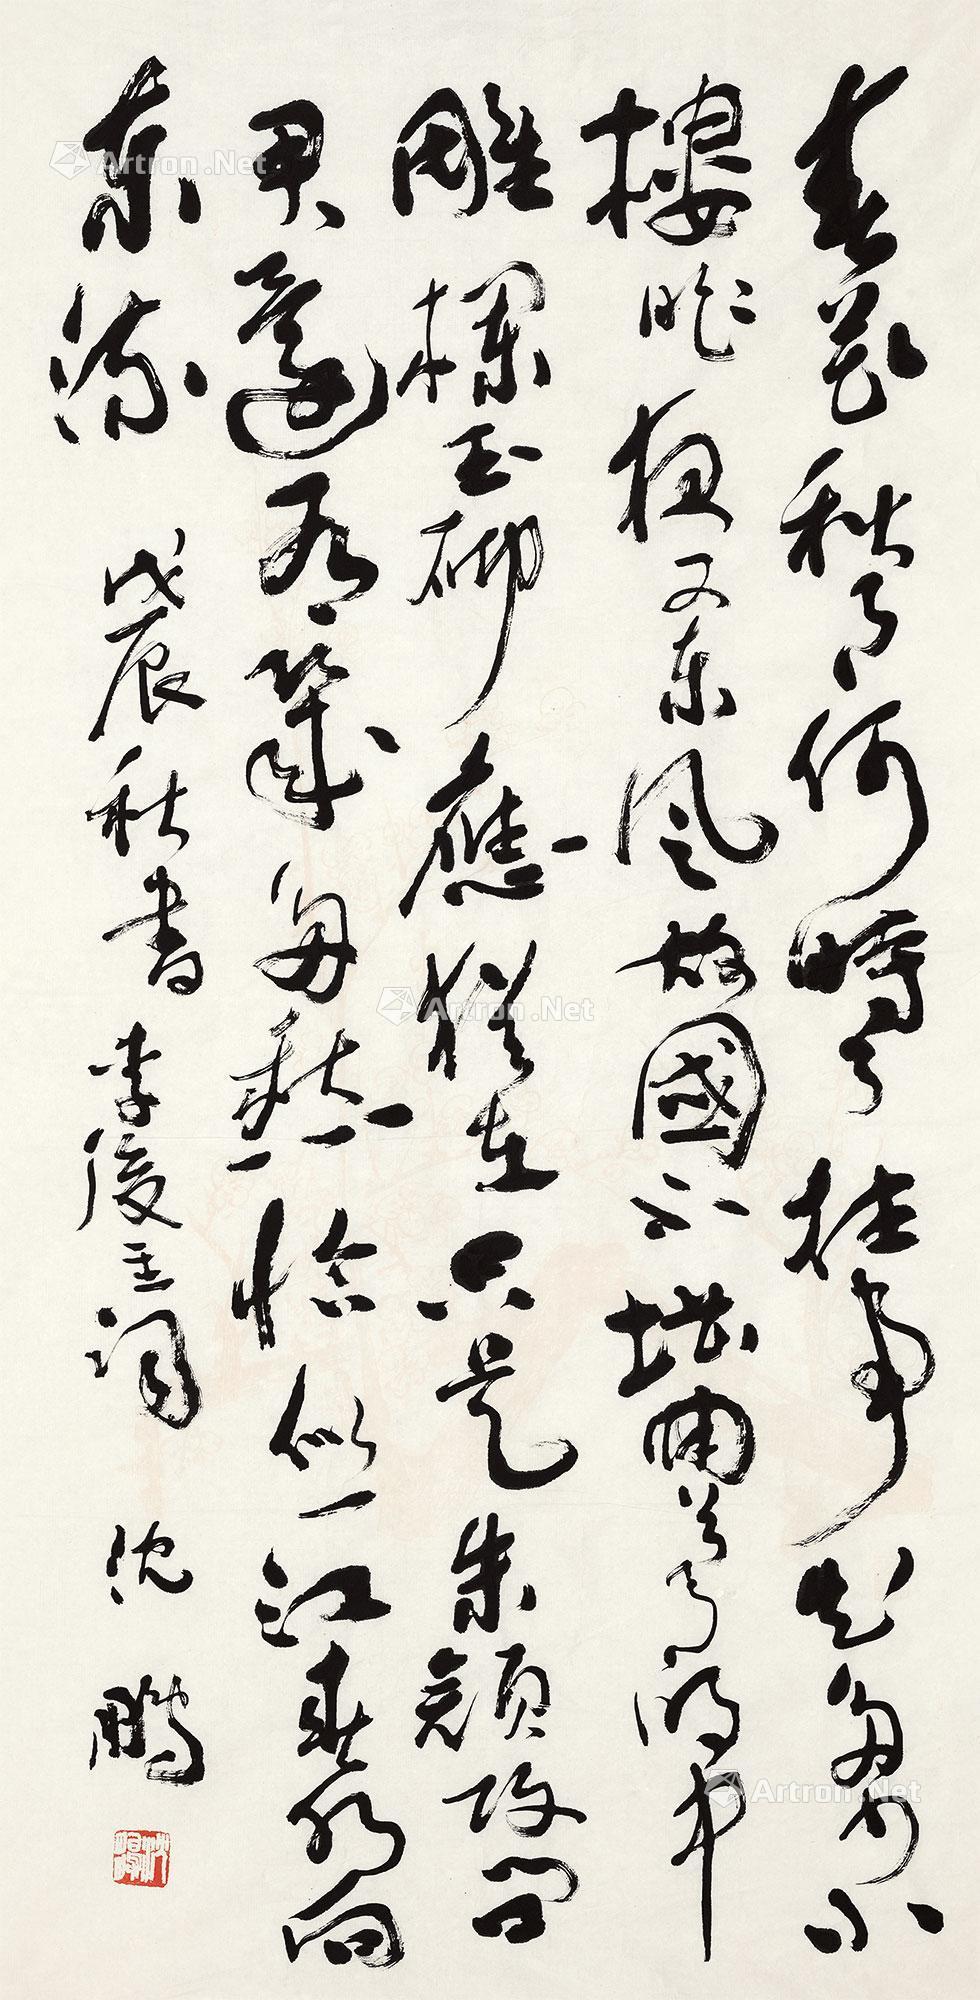 春花秋月何時了往事知多少小
樓昨夜又東風故國不堪回首月明中
雕欄玉砌應猶在只是朱顏改問
君還有幾多愁恰似一江春水向
東流
戊辰秋書李後主詞 沈鵬
沈鵬
Artron.Net
Artron.Net
Artron.Net